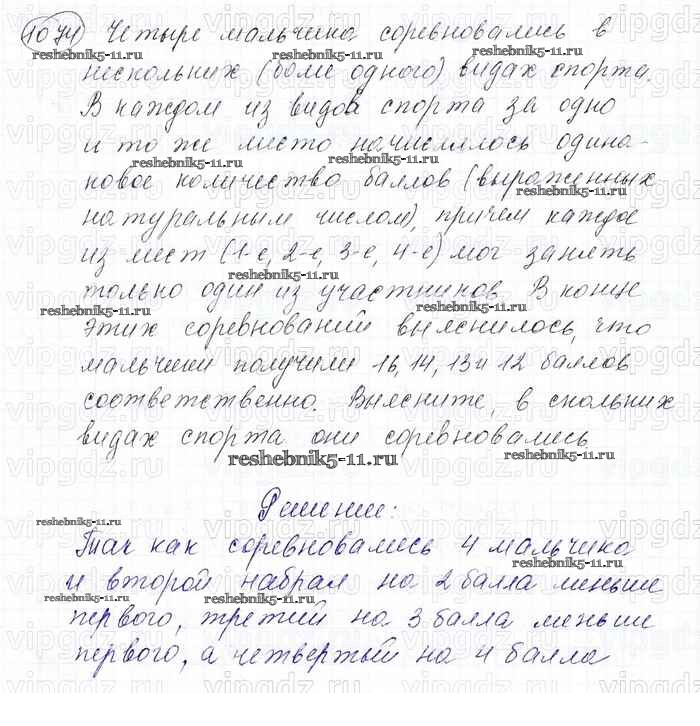 1074 Четыре мальчика соревновались в
нескольких (более одного) видах спорта.
В каждом из видов спорта за одно
и то же место начислялось одина-
ковое количество баллов (выраженных
натуральным числом), причем каждое
из мест (1-е, 2-е, 3-е, 4-е) мог занять
только один из участников. В конце
этих соревнований выяснилось, что
мальчики получили 16, 14, 13 и 12 баллов
соответственно. Выясните, в скольких
видах спорта они соревновались
reshebnik5-11.ru
Решение:
Так как соревновались 4 мальчика
и второй набрал на 2 балла меньше
первого, третий на 3 балла меньше
первого, а четвертый на 4 балла